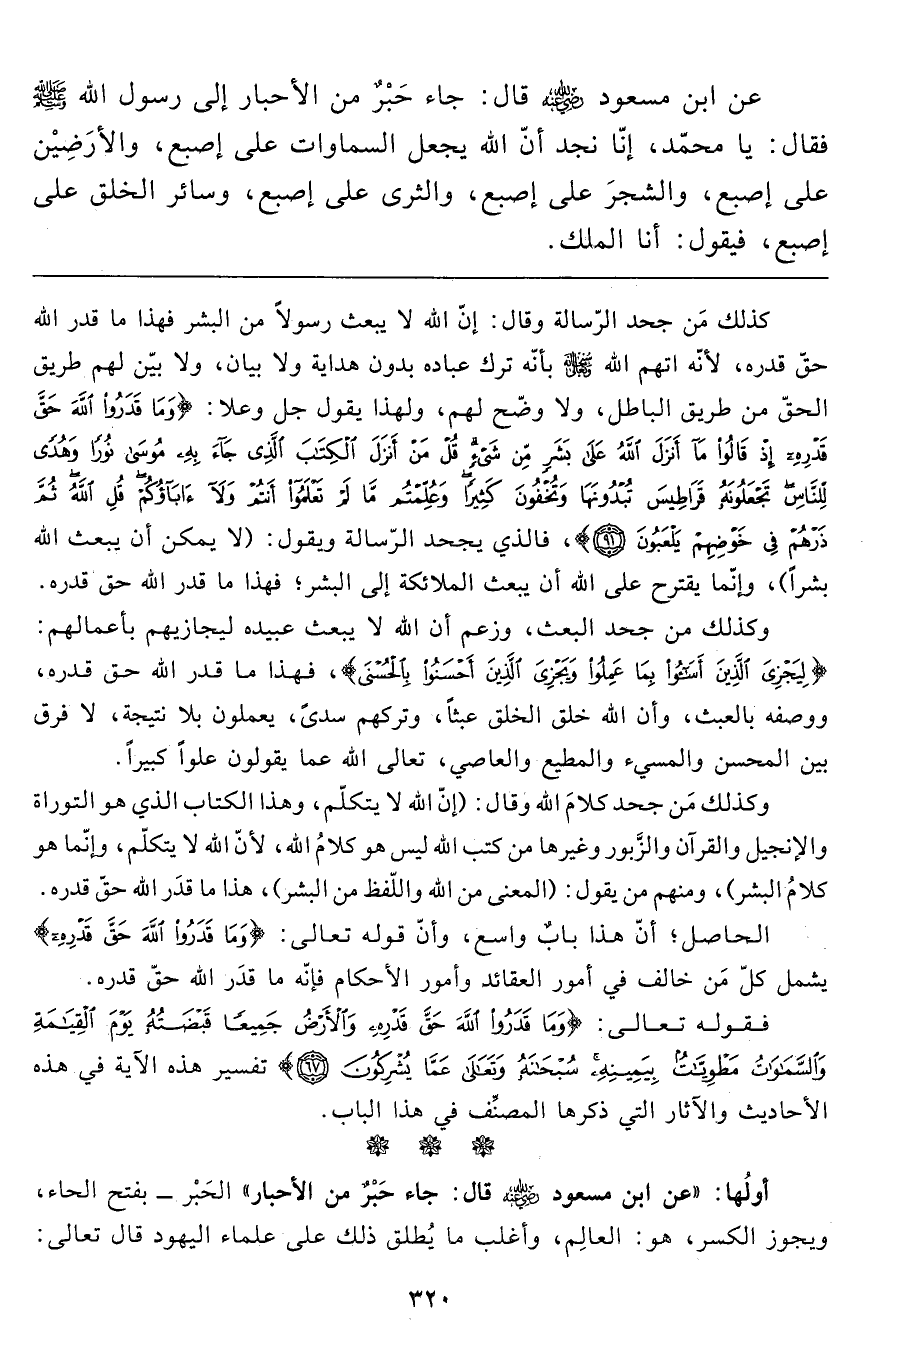 عن ابن مسعود ﵁ قال: جاء حَبْرٌ من الأحبار إلى رسول الله ﷺ
فقال: يا محمّد، إنّا نجد أنّ الله يجعل السماوات على إصبع، والأرَضِيْن
على إصبع، والشجرَ على إصبع، والثرى على إصبع، وسائر الخلق على
إصبع، فيقول: أنا الملك.
كذلك مَن جحد الرّسالة وقال: إنّ الله لا يبعث رسولاً من البشر فهذا ما قدر الله
حقّ قدره، لأنّه اتهم الله ﷻ بأنّه ترك عباده بدون هداية ولا بيان، ولا بيّن لهم طريق
الحقّ من طريق الباطل، ولا وضّح لهم، ولهذا يقول جل وعلا: ﴿وَمَا قَدَرُوا۟ ٱللَّهَ حَقَّ
قَدْرِهِۦٓ إِذْ قَالُوا۟ مَآ أَنزَلَ ٱللَّهُ عَلَىٰ بَشَرٍ مِّن شَىْءٍ ۗ قُلْ مَنْ أَنزَلَ ٱلْكِتَـٰبَ ٱلَّذِى جَآءَ بِهِۦ مُوسَىٰ نُورًا وَهُدًى
لِّلنَّاسِ ۖ تَجْعَلُونَهُۥ قَرَاطِيسَ تُبْدُونَهَا وَتُخْفُونَ كَثِيرًا ۖ وَعُلِّمْتُم مَّا لَمْ تَعْلَمُوٓا۟ أَنتُمْ وَلَآ ءَابَآؤُكُمْ ۖ قُلِ ٱللَّهُ ۖ ثُمَّ
ذَرْهُمْ فِى خَوْضِهِمْ يَلْعَبُونَ ۝٩١﴾، فالذي يجحد الرّسالة ويقول: (لا يمكن أن يبعث الله
بشراً)، وإنّما يقترح على الله أن يبعث الملائكة إلى البشر؛ فهذا ما قدر الله حق قدره.
وكذلك من جحد البعث، وزعم أن الله لا يبعث عبيده ليجازيهم بأعمالهم:
﴿لِيَجْزِىَ ٱلَّذِينَ أَسَـٰٓـُٔوا۟ بِمَا عَمِلُوا۟ وَيَجْزِىَ ٱلَّذِينَ أَحْسَنُوا۟ بِٱلْحُسْنَى﴾، فهذا ما قدر الله حق قدره،
ووصفه بالعبث، وأن الله خلق الخلق عبثاً، وتركهم سدىً، يعملون بلا نتيجة، لا فرق
بين المحسن والمسيء والمطيع والعاصي، تعالى الله عما يقولون علواً كبيراً.
وكذلك مَن جحد كلامَ الله وقال: (إنّ الله لا يتكلّم، وهذا الكتاب الذي هو التوراة
والإنجيل والقرآن والزَّبور وغيرها من كتب الله ليس هو كلامُ الله، لأنّ الله لا يتكلّم، وإنّما هو
كلامُ البشر)، ومنهم من يقول: (المعنى من الله واللّفظ من البشر)، هذا ما قدَر الله حقّ قدره.
الحاصل؛ أنّ هذا بابٌ واسع، وأنّ قوله تعالى: ﴿وَمَا قَدَرُوا۟ ٱللَّهَ حَقَّ قَدْرِهِۦٓ﴾
يشمل كلّ مَن خالف في أمور العقائد وأمور الأحكام فإنّه ما قدَر الله حقّ قدره.
فقوله تعالى: ﴿وَمَا قَدَرُوا۟ ٱللَّهَ حَقَّ قَدْرِهِۦ وَٱلْأَرْضُ جَمِيعًا قَبْضَتُهُۥ يَوْمَ ٱلْقِيَـٰمَةِ
وَٱلسَّمَـٰوَٰتُ مَطْوِيَّـٰتٌۢ بِيَمِينِهِۦ ۚ سُبْحَـٰنَهُۥ وَتَعَـٰلَىٰ عَمَّا يُشْرِكُونَ ۝٦٧﴾ تفسير هذه الآية في هذه
الأحاديث والآثار التي ذكرها المصنِّف في هذا الباب.
أولُها: «عن ابن مسعود ﵁ قال: جاء حَبْرٌ من الأحبار» الحَبْر – بفتح الحاء،
ويجوز الكسر، هو: العالِم، وأغلب ما يُطلق ذلك على علماء اليهود قال تعالى:
٣٢٠